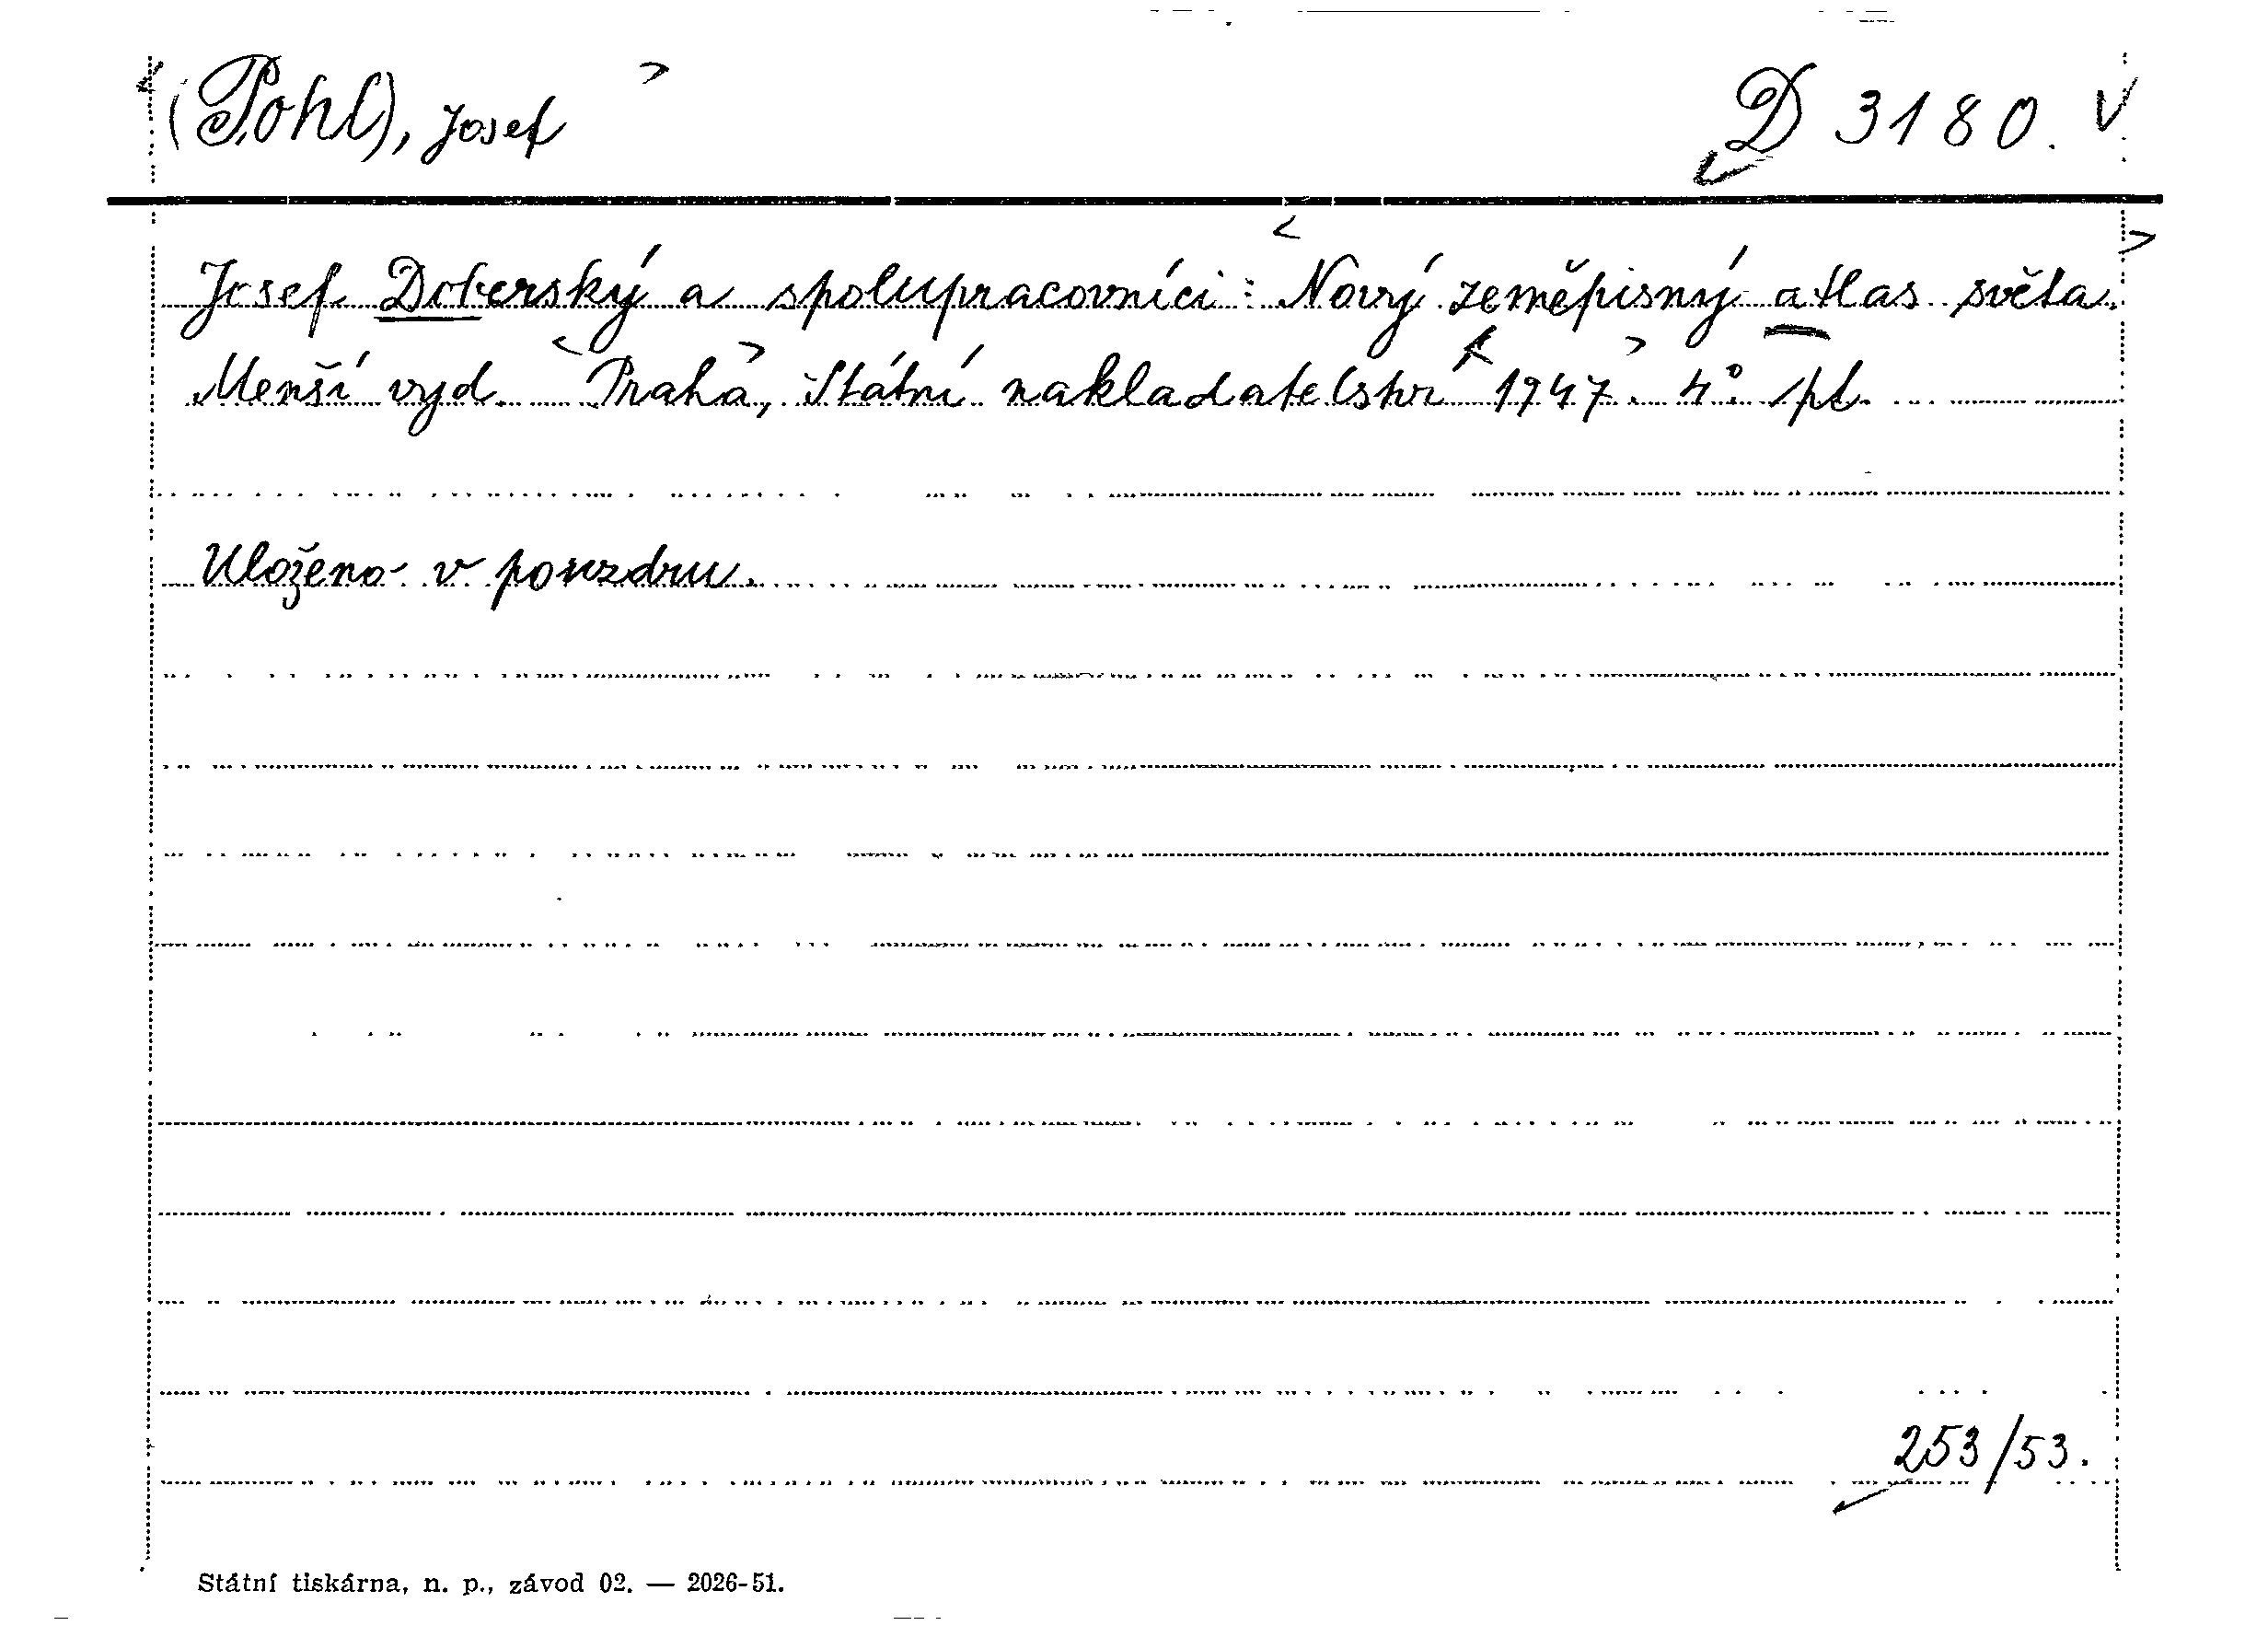 (Pohl), Josef D 3180. V
Josef Doberský a spolupracovníci: Nový zeměpisný atlas světa.
Menší vyd. Praha, Státní nakladatelství 1947. 4° pl.
Uloženo v pouzdru.
253/53.
Státní tiskárna, n. p., závod 02. — 2026-51.